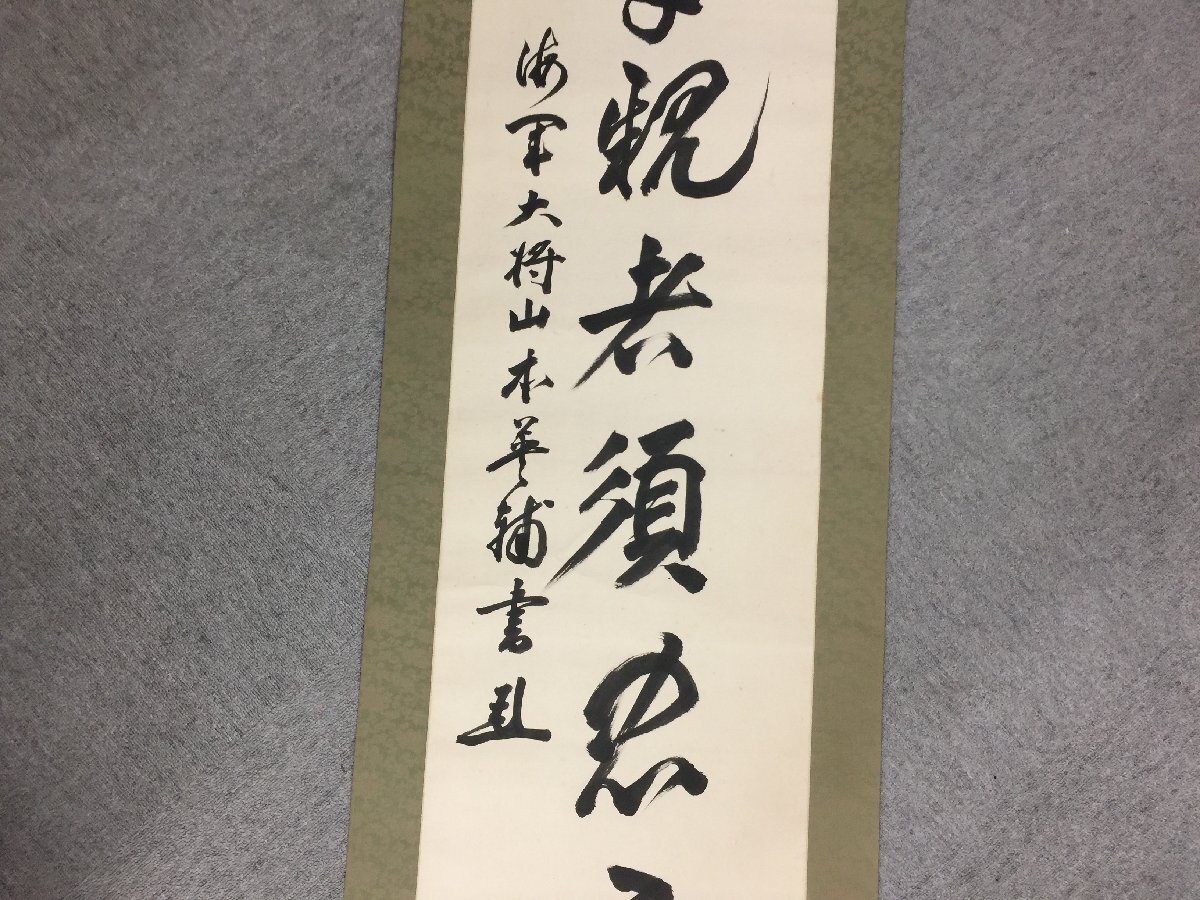 親者須
海軍大将山本英輔書